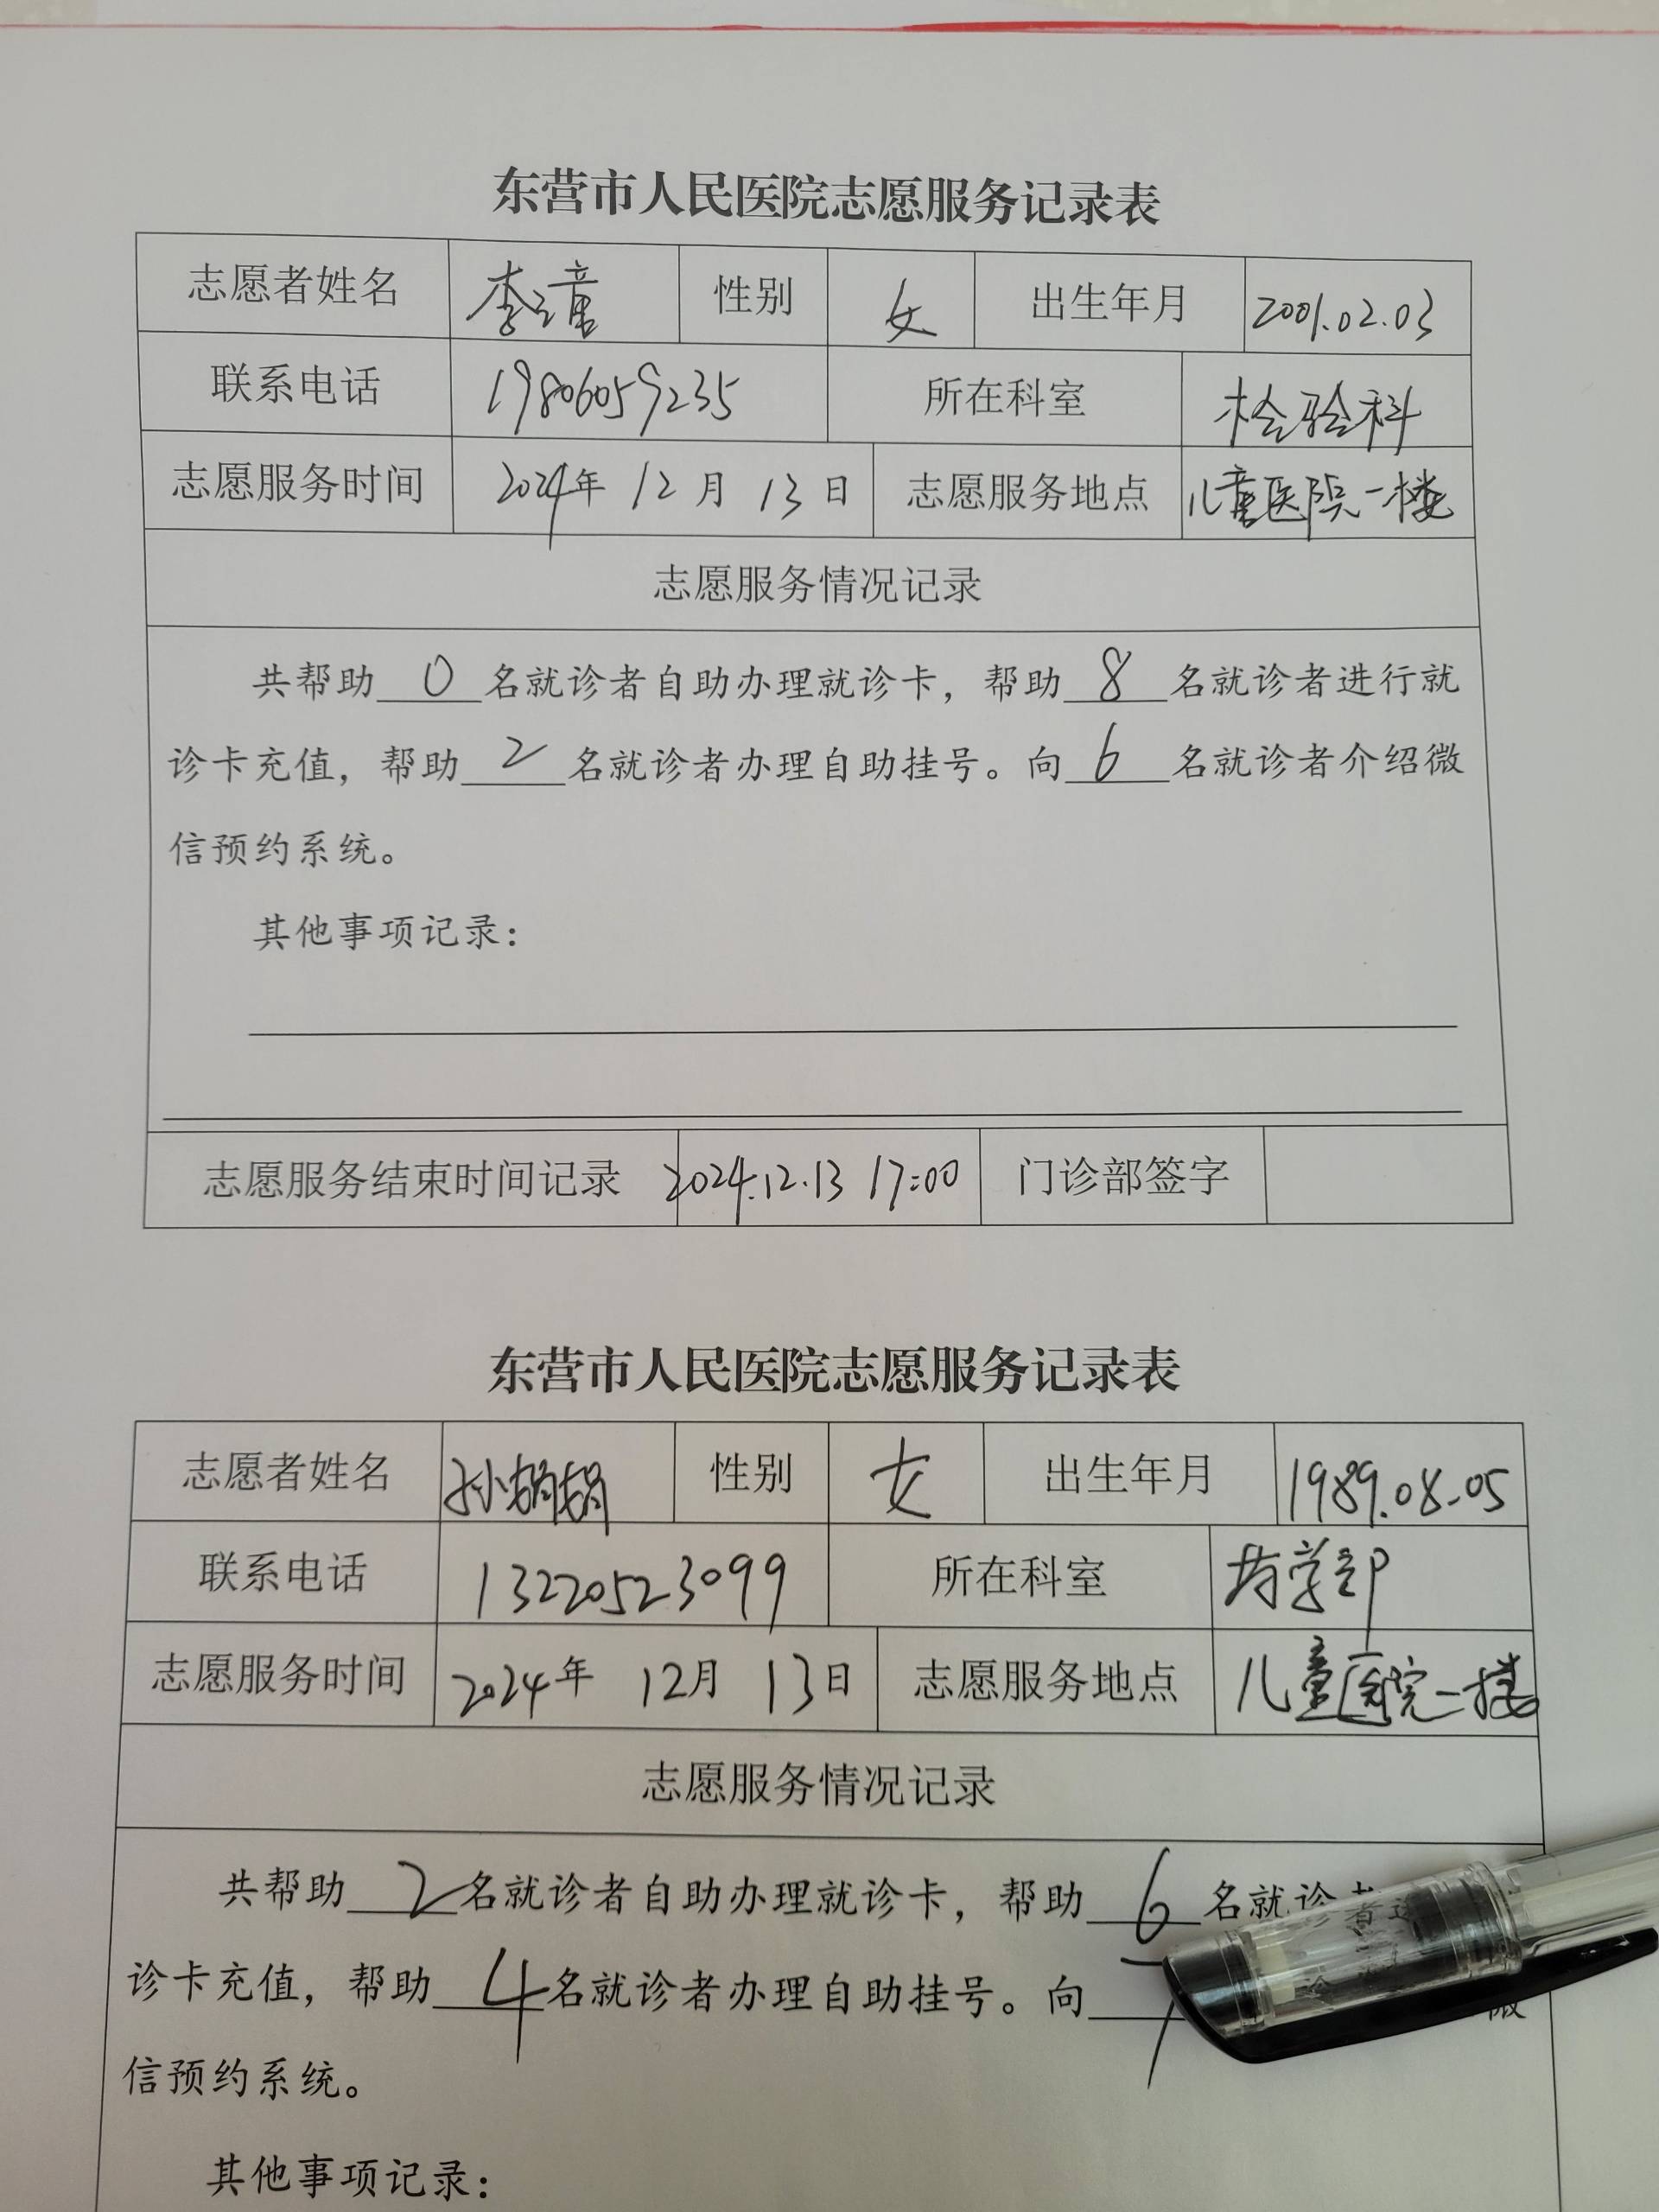 东营市人民医院志愿服务记录表
志愿者姓名 李童 性别 女 出生年月 2001.02.03
联系电话 19806059235 所在科室 检验科
志愿服务时间 2024年 12月 13日 志愿服务地点 儿童医院一楼
志愿服务情况记录
共帮助 0 名就诊者自助办理就诊卡，帮助 8 名就诊者进行就
诊卡充值，帮助 2 名就诊者办理自助挂号。向 6 名就诊者介绍微
信预约系统。
其他事项记录：
志愿服务结束时间记录 2024.12.13 17:00 门诊部签字
东营市人民医院志愿服务记录表
志愿者姓名 孙娟娟 性别 女 出生年月 1989.08.05
联系电话 13220523099 所在科室 药学部
志愿服务时间 2024年 12月 13日 志愿服务地点 儿童医院一楼
志愿服务情况记录
共帮助 2 名就诊者自助办理就诊卡，帮助 6 名就诊者
诊卡充值，帮助 4 名就诊者办理自助挂号。向 微
信预约系统。
其他事项记录：